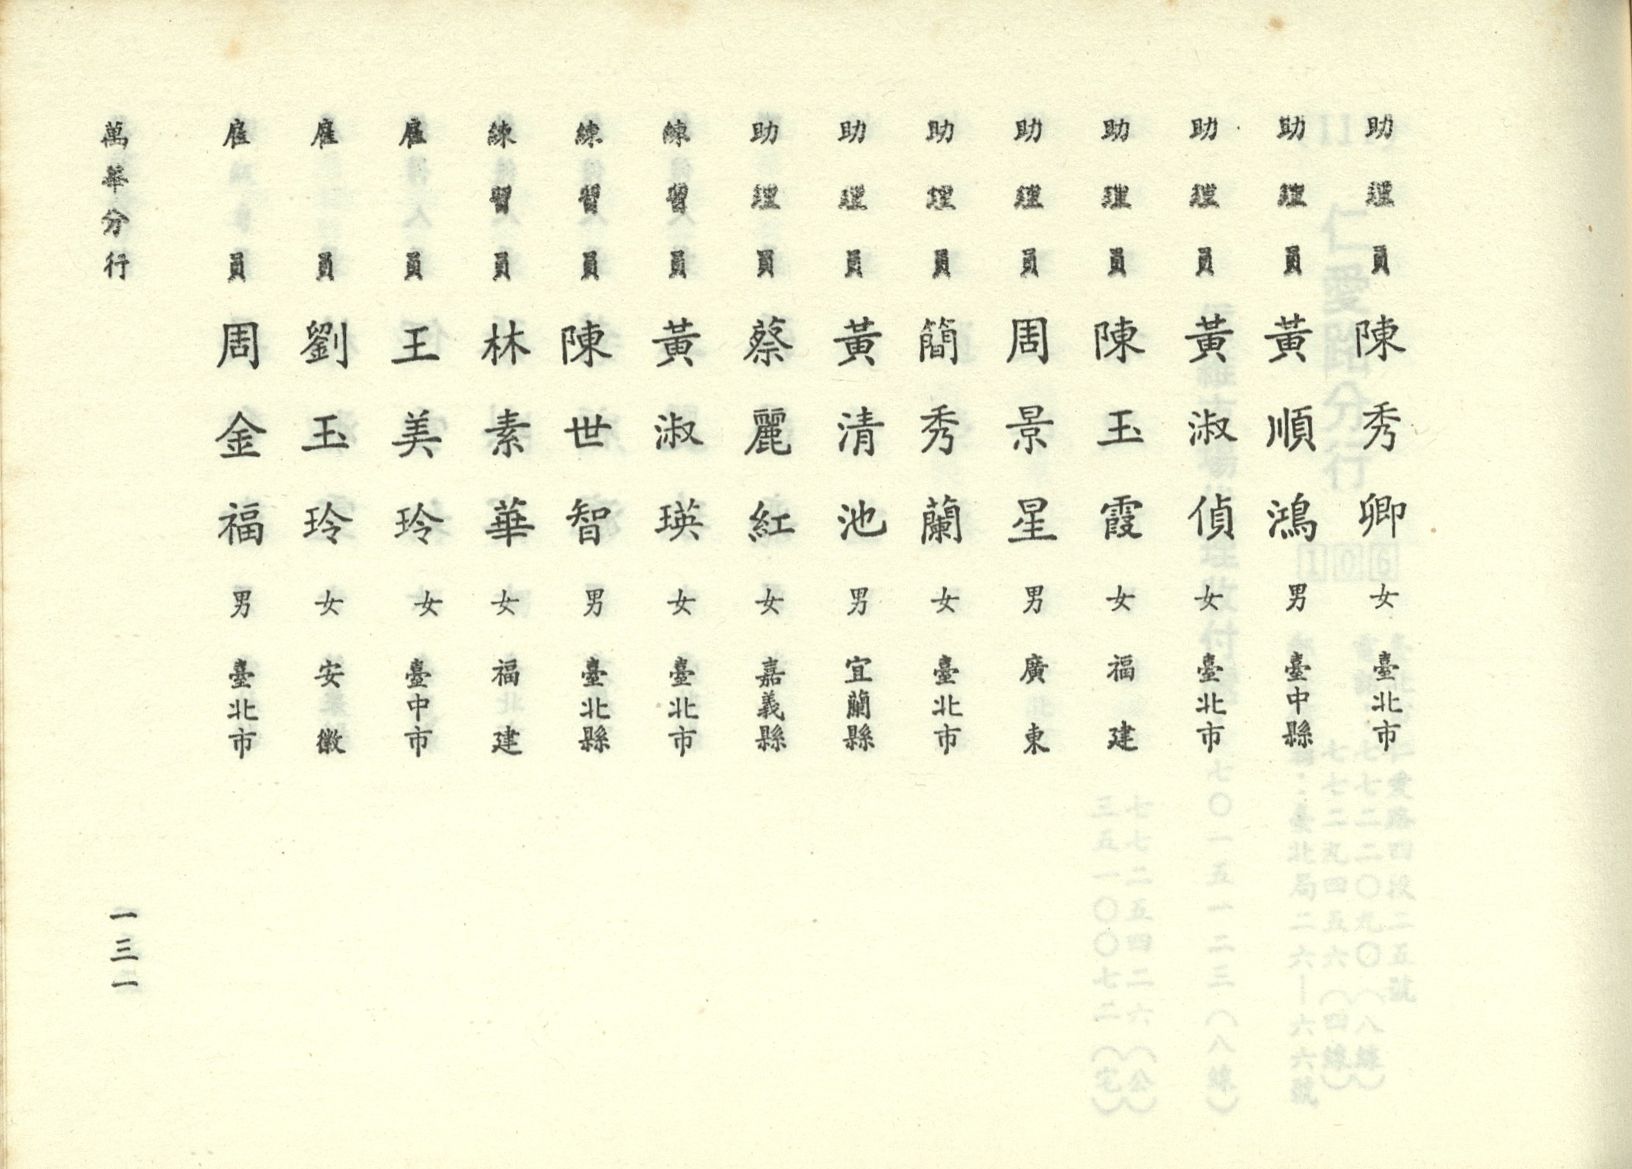 助理員 陳秀卿 女 臺北市
助理員 黃順鴻 男 臺中縣
助理員 黃淑偵 女 臺北市
助理員 陳玉霞 女 福建
助理員 周景星 男 廣東
助理員 簡秀蘭 女 臺北市
助理員 黃清池 男 宜蘭縣
助理員 蔡麗紅 女 嘉義縣
練習員 黃淑瑛 女 臺北市
練習員 陳世智 男 臺北縣
練習員 林素華 女 福建
雇員 王美玲 女 臺中市
雇員 劉玉玲 女 安徽
雇員 周金福 男 臺北市
萬華分行
一三一